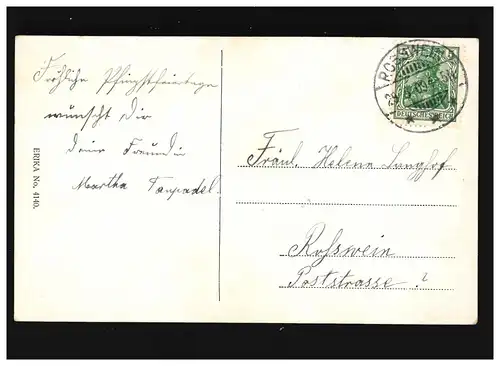 Fröhliche Pfingstfeiertage
wünscht Dir
deine Freundin
Martha
ERIKA No. 4140.
DEUTSCHES REICH
Fräul. Helene Langhof
Rosswein
Poststrasse ?